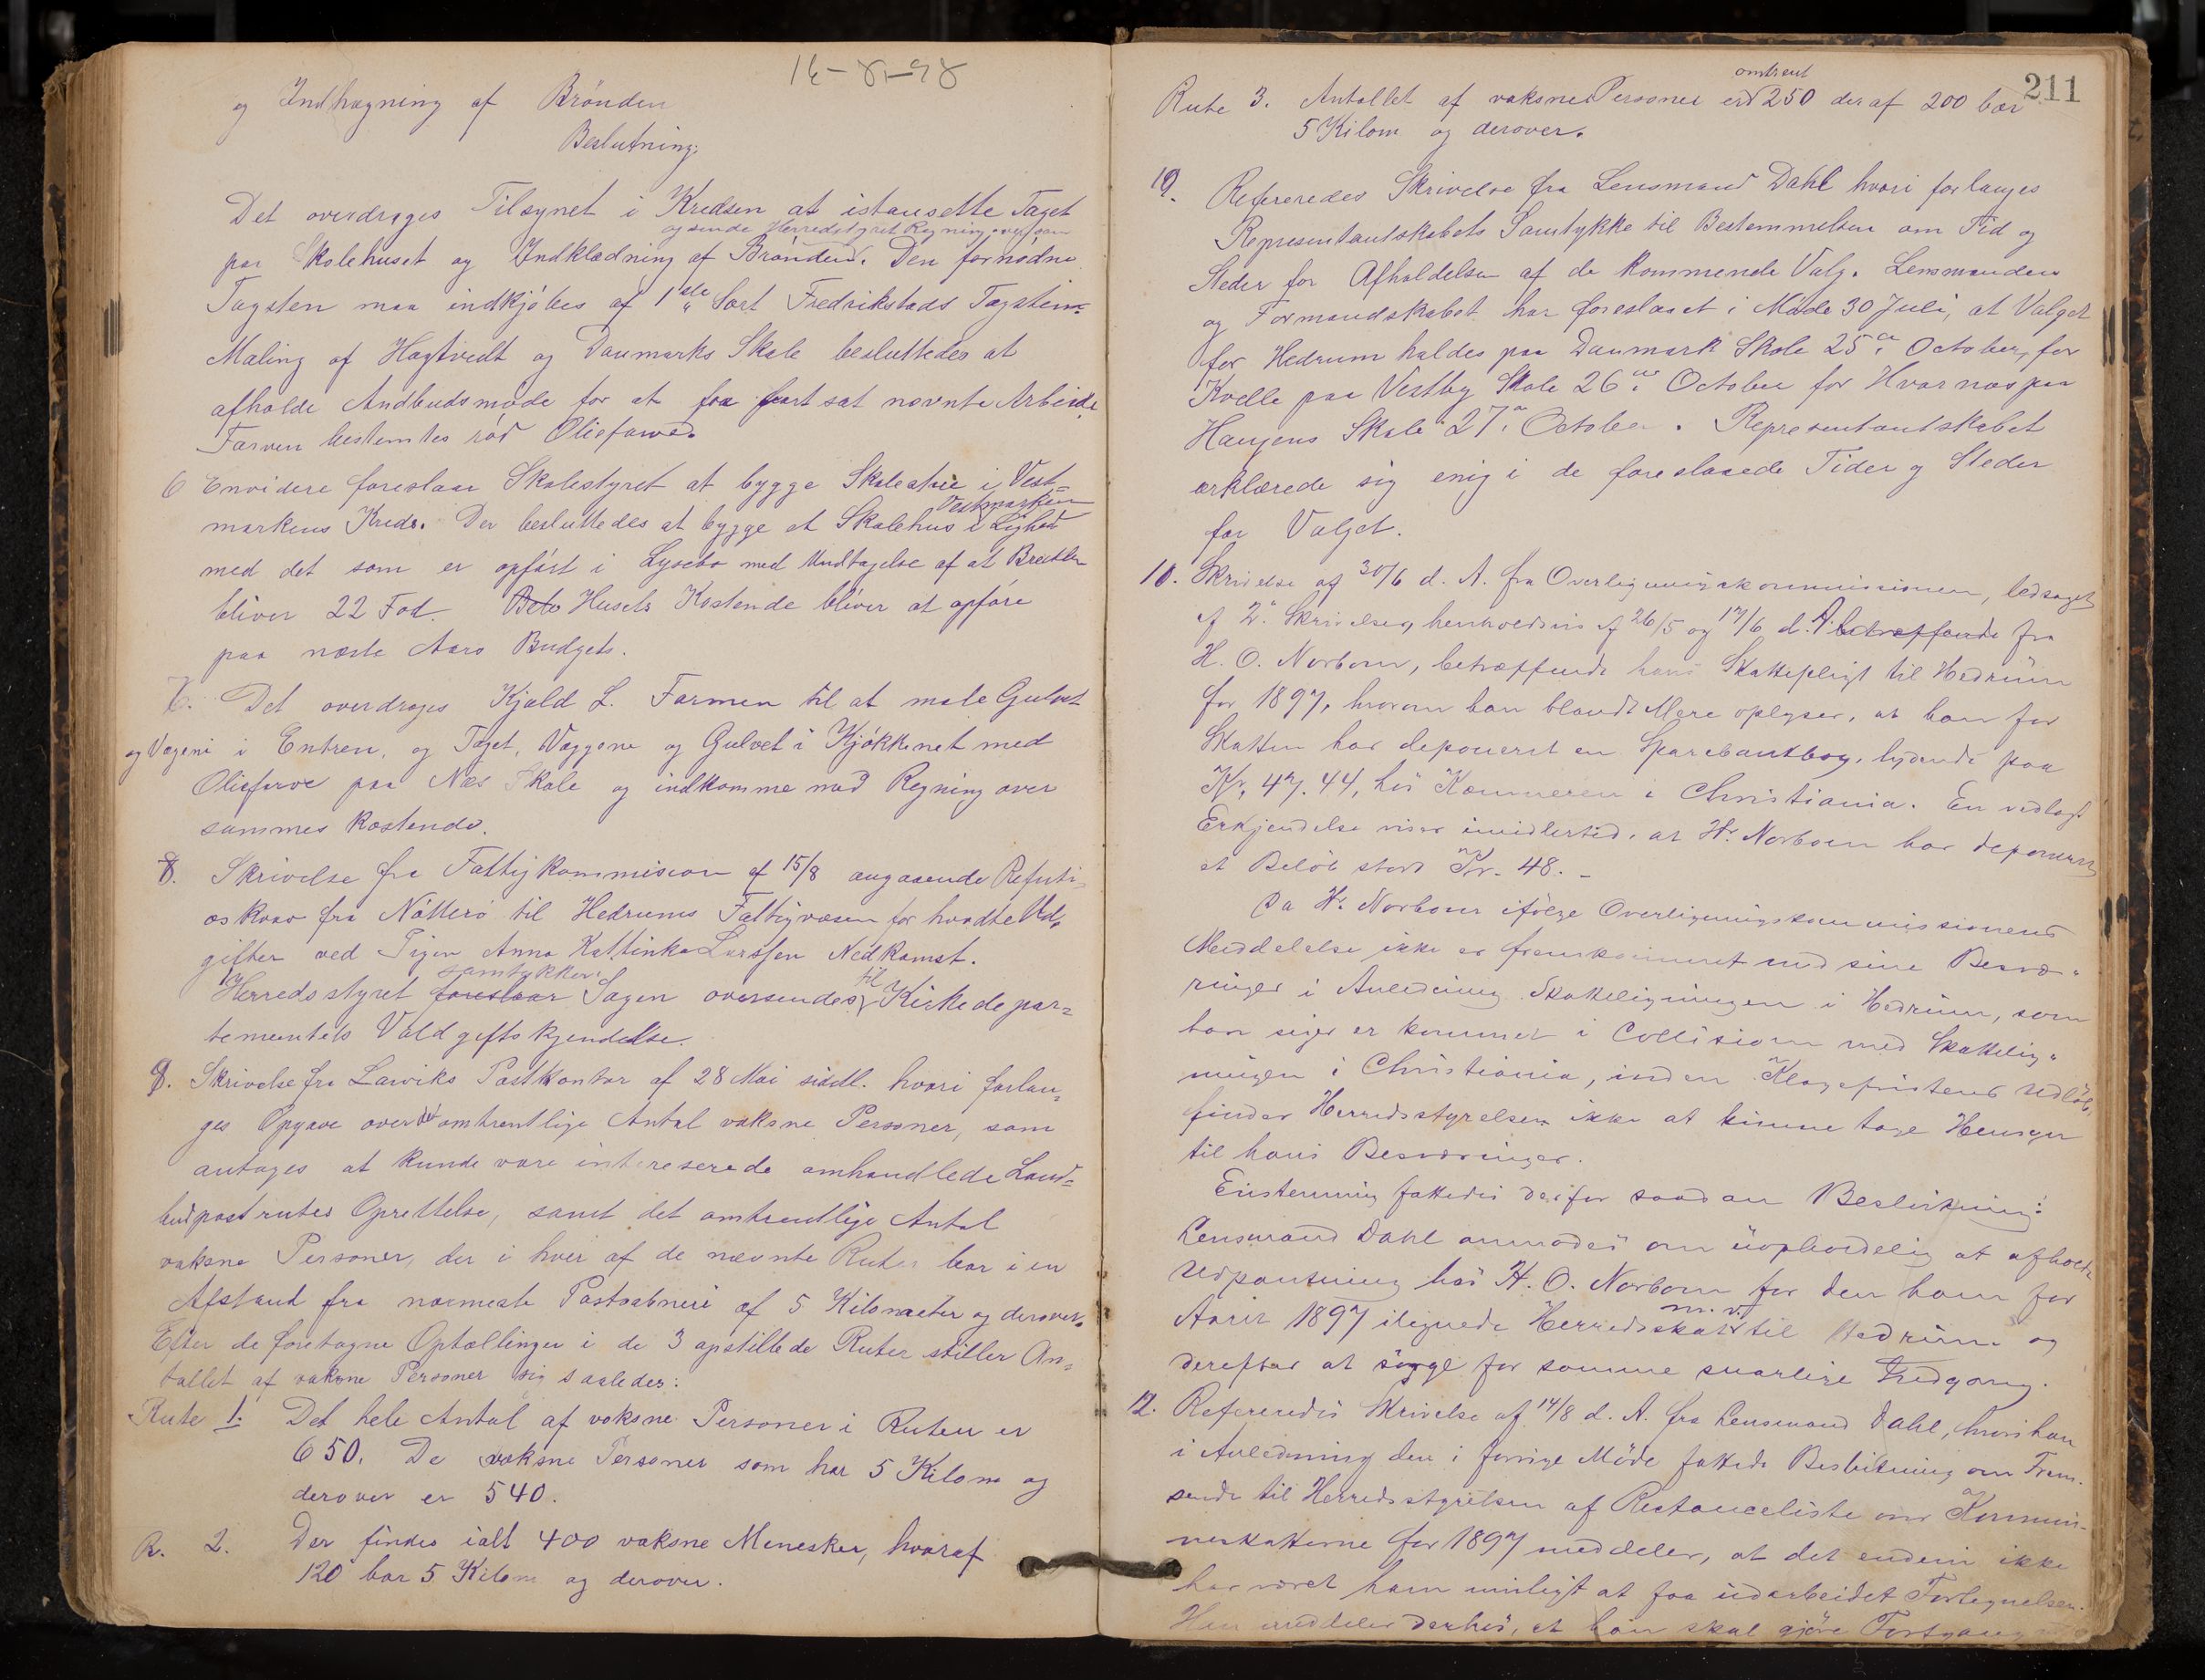 16-8-98
og Indhegning af Brønden
Beslutning:
Det overdroges Tilsynet i Kredsen at istandsette Taget
og sende Herredstyret Regning overfor
paa Skolehuset og Indklædning af Brønden. Den fornødne
Tagsten maa indkjøbes af 1ste Sort Fredrikstads Tagsten=
Maling af Hagtvedt og Danmarks Skole besluttedes at
afholde Andbudsmøde for at faa fort sat nævnte Arbeide
Farven bestemtes rød Oliefarve.
6 Envidere foreslaar Skolestyret at bygge Skolestue i Vest=
Vestmarken
markens Kreds. Der besluttedes at bygge et Skolehus i Lighed
med det som er opført i Lysebo med Undtagelse af at Bredden
bliver 22 Fod. Husets Kostende bliver at opføre
paa næste Aars Budget.
7. Det overdroges Kjøld L. Farmen til at male Gulvet
og Vægene i Entreen, og Taget, Væggene og Gulvet i Kjøkkenet med
Oliefarve paa Nes Skole og indkomme med Regning over
sammes kostende.
8. Skrivelse fra Fattigkommision af 15/8 angaaende Refuti=
oskrav fra Nötterö til Hedrums Fattigvæsen for hvadte Ud,
gifter ved Pigen Anna Kattinka Larssen Nedkomst.
samtykker til
Herredsstyret foreslaar Sagen oversendes Kirkedepar=
tementets Voldgiftskjendelse.
9. Skrivelse fra Larviks Postkontor af 28 Mai siddl. hvori forlan=
ges Opgave over det omtrentlige Antal voksne Personer, som
antages at kunde være intereserede omhandlede Land=
budpostrutes Oprettelse, samt det omtrentlige Antal
voksne Personer, der i hver af de nævnte Ruter bor i en
Afstand fra nærmeste Postaabneri af 5 Kilometer og derover.
Efter de foretagne Optællinger i de 3 opstillede Ruter stiller An=
tallet af voksne Personer sig saaledes:
Rute 1. Det hele Antal af voksne Personer i Ruten er
650. De voksne Personer som har 5 Kilom og
derover er 540.
R. 2. Der findes ialt 400 voksne Menesker, hvoraf
120 bor 5 Kilom og derover.
211
omtrent
Rute 3. Antallet af voksne Personer er 250 deraf 200 bor
5 Kilom og derover.
10. Refereredes Skrivelse fra Lensmand Dahl hvori forlanges
Representantskabets Samtykke til Bestemmelsen om Tid og
Steder for Afholdelsen af de kommende Valg. Lensmanden
og Formandskabet har foreslaaet i Møde 30 Juli, at Valget
for Hedrum holdes paa Danmark Skole 25de October, for
Kvelle paa Vestby Skole 26de October for Hvarnes paa
Haugens Skole 27. October. Representantskabet
erklærede sig enig i de foreslaaede Tider og Steder
for Valget.
10. Skrivelse af 30/6 d. A. fra Overligningskommissionen, ledsaget
af 2 Skrivelser, henholdsvis af 26/5 og 17/6 d. A. betræffende fra
H. O. Norbom, betræffende hans Skattepligt til Hedrum
for 1897, hvorom han blandt Mere oplyser, at han for
Skatten har deponeret en Sparebankbog, lydende paa
Kr. 47.44, hos Kæmneren i Christiania. En vedlagt
Erkjendelse viser imidlertid, at Hr. Norbom har deponeret
et Beløb stort Kr. 48.-
Da Hr. Norbom ifølge Overligningskommissionens
Meddelelse ikke er fremkommet med sine Besvæ-
ringer i Anledning Skatteligningen i Hedrum, som
han siger er kommet i Collision med Skattelig-
ningen i Christiania, inden Klagefristens Udløb,
finder Herredsstyrelsen ikke at kunne tage Hensyn
til hans Besværinger.
Enstemmig fattedes derfor saadan Beslutning:
Lensmand Dahl anmodes om uopholdelig at afholde
Udpantning hos H. O. Norbom for den ham for
m. v.
Aaret 1897 ilignede Herredsskat til Hedrum og
derefter at sørge for samme snarlige Indgang.
12. Referedes Skrivelse af 14/8 d. A. fra Lensmand Dahl, hvori han
i Anledning den i forrige Møde fattede Beslutning om Frem-
sende til Herredsstyrelsen af Restanceliste over Kommu-
neskatterne for 1897 meddeler, at det endnu ikke
har været ham muligt at faa udarbeidet Fortegnelsen.
Han meddeler derhos, at han skal gjøre Fortgang